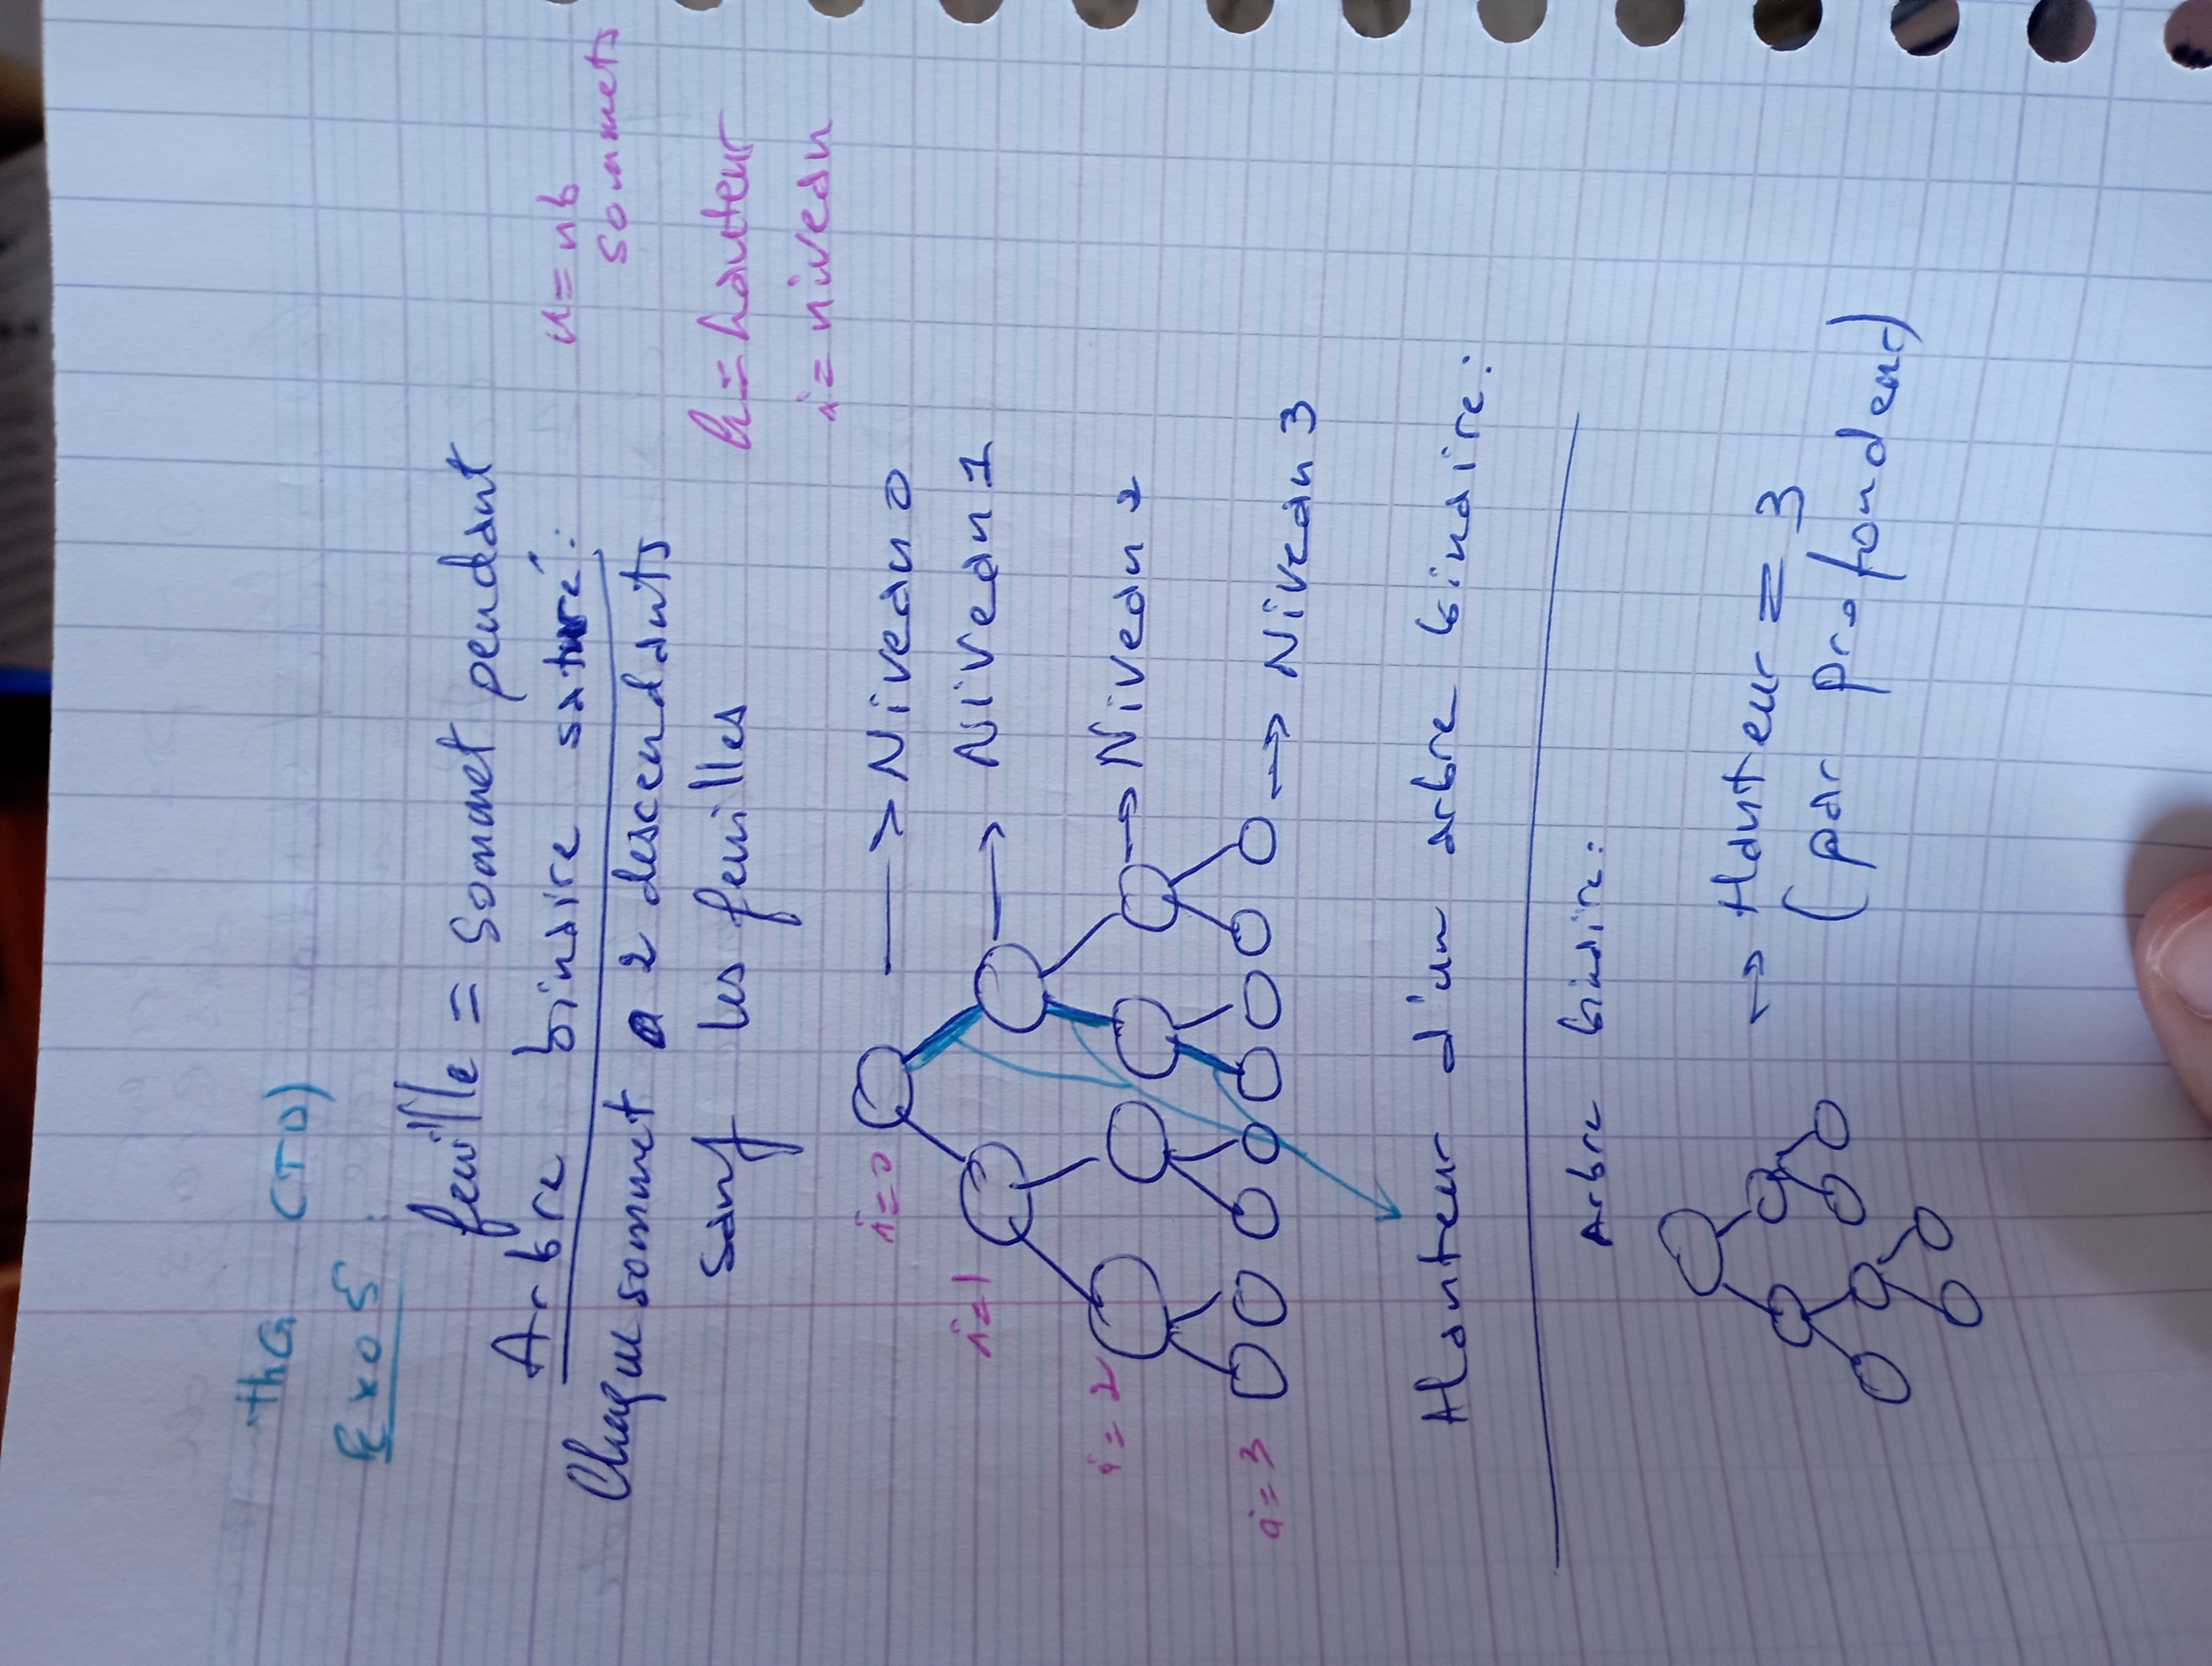 thG (TD)
Exo 5 :
feuille = sommet pendant
Arbre binaire saturé :
n = nb
sommets
Chaque sommet a 2 descendants
sauf les feuilles
h = hauteur
i = niveau
i=0 → Niveau 0
i=1 → Niveau 1
i=2 → Niveau 2
i=3 → Niveau 3
Hauteur d'un arbre binaire :
Arbre binaire :
→ Hauteur = 3
(par profondeur)